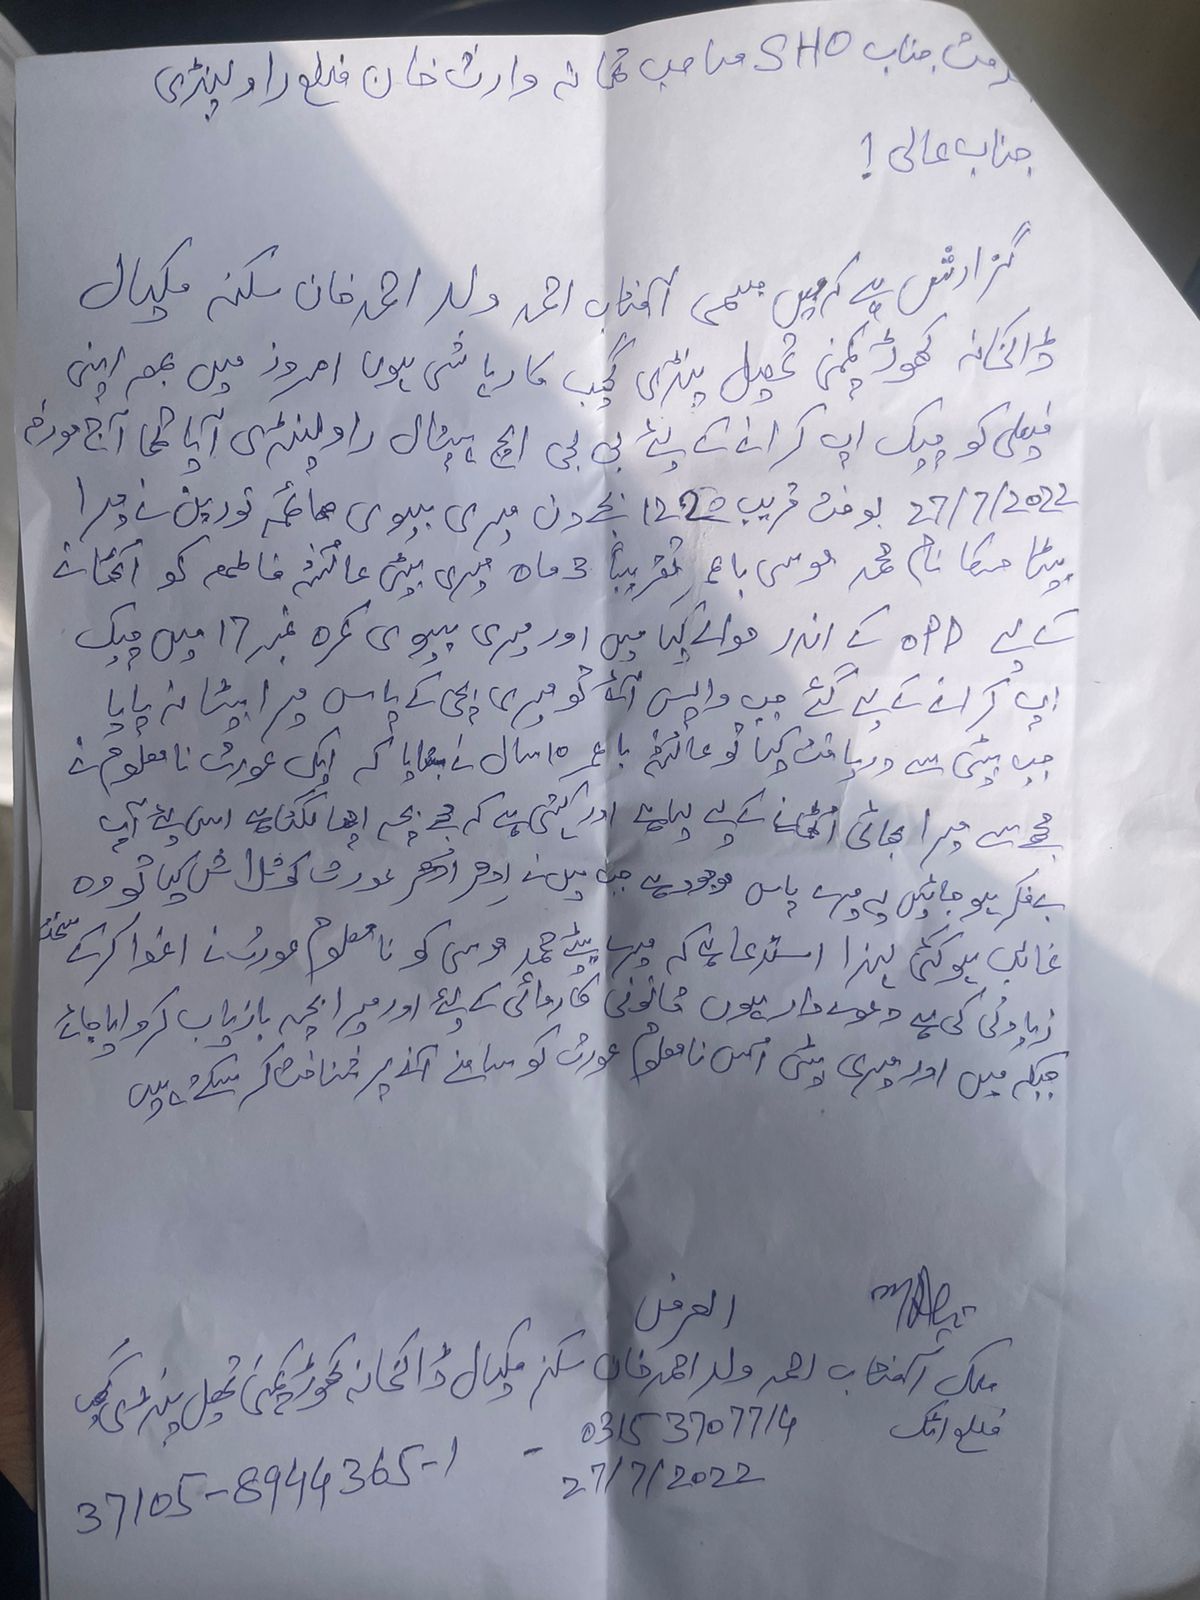 خدمت جناب SHO صاحب تھانہ وارث خان ضلع راولپنڈی
جناب عالی !
گزارش ہے کہ میں مسمی آفتاب احمد ولد احمد خان سکنہ مکیال
ڈاکخانہ کھوڑ کمپنی تحصیل پنڈی گھیب کا رہائشی ہوں امروز میں بمعہ اپنی
فیملی کو چیک اپ کرانے کے لئے بی بی ایچ ہسپتال راولپنڈی آیا تھا آج مورخہ
27/7/2022 بوقت قریب 1220 بجے دن میری بیوی نورین نے میرا
بیٹا جسکا نام محمد موسی باعمر تقریباً 3 ماہ میری بیٹی عائشہ فاطمہ کو اٹھانے
کے لیے OPD کے اندر حوالے کیا میں اور میری بیوی کمرہ نمبر 17 میں چیک
اپ کرانے کے لیے گئے جب واپس آئے تو میری بچی کے پاس میرا بیٹا نہ پایا
جب بیٹی سے دریافت کیا تو عائشہ باعمر 10 سال نے بتایا کہ ایک عورت نامعلوم نے
مجھ سے میرا بھائی اٹھانے کے لیے لیا ہے اور کہتی ہے کہ مجھے بچہ اچھا لگتا ہے اس لئے آپ
بے فکر ہو جائیں یہ میرے پاس موجود ہے جب میں نے ادھر ادھر عورت کو تلاش کیا تو وہ
غائب ہو گئی لہذا استدعا ہے کہ میرے بیٹے محمد موسی کو نامعلوم عورت نے اغوا کر کے سخت
زیادتی کی ہے دعوے دار ہوں قانونی کاروائی کے لئے اور میرا بچہ بازیاب کروایا جائے
جبکہ میں اور میری بیٹی اس نامعلوم عورت کو سامنے آنے پر شناخت کر سکتے ہیں
العرض
ملک آفتاب احمد ولد احمد خان سکنہ مکیال ڈاکخانہ کھوڑ کمپنی تحصیل پنڈی گھیب
ضلع اٹک 03153707714
37105-8944365-1 - 27/7/2022